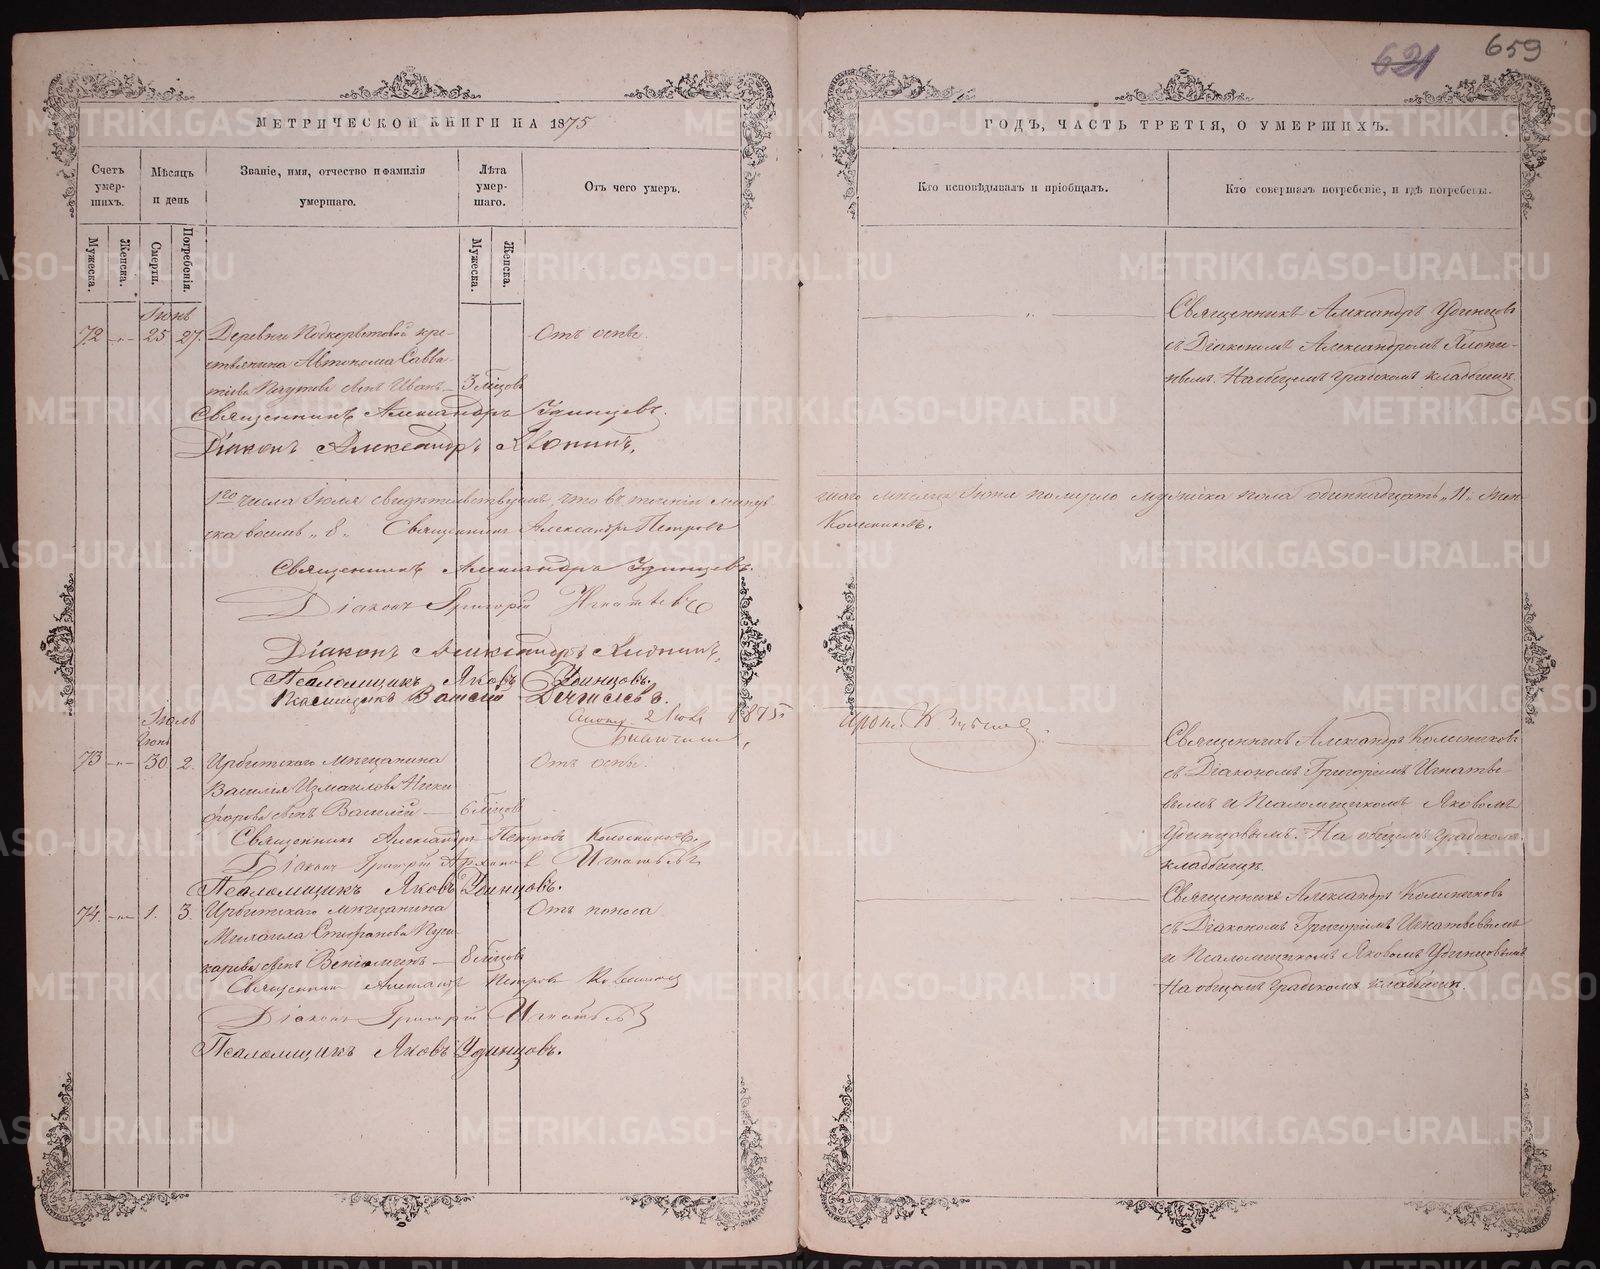 621 659
МЕТРИЧЕСКОЙ КНИГИ НА 1875
Счетъ умер-шихъ.
Мѣсяцъ и день
Званіе, имя, отчество и фамилія умершаго.
Лѣта умер-шаго.
Отъ чего умеръ.
Мужеска. Женска. Смерти. Погребенія. Мужеска. Женска.
Іюнь
72 -„- 25 27. Деревни Подкорытовой кре- Отъ оспы.
стьянина Автонома Савва-
тіева сынъ Иванъ — 3 мѣсцовъ
Священникъ Александръ Удинцевъ.
Діаконъ Александръ Хлопинъ.
1го числа Іюля свидѣтельствуемъ что въ теченіи минув-
ска восемь „8„ Священникъ Александръ Петровъ
Священникъ Александръ Удинцевъ
Діаконъ Григорій Игнатьевъ
Діаконъ Александръ Хлопинъ,
Псаломщикъ Яковъ Удинцовъ.
Псаломщикъ Василій
2 Іюля 1875
Іюль
Іюнь
73 -„- 30 2. Ирбитскаго мѣщанина Отъ оспы.
Василія Измаилова Ники
форова сынъ Василій — 6 мѣсцовъ
Священникъ Александръ Петровъ Колесниковъ.
Діаконъ Григорій Архиповъ Игнатьевъ
Псаломщикъ Яковъ Удинцовъ.
74. -„- 1. 3. Ирбитскаго мѣщанина Отъ поноса
Михаила Стефанова
сынъ Веніаминъ — 8 мѣсцовъ
Священникъ Александръ Петровъ Колесниковъ
Діаконъ Григорій Игнатьевъ
Псаломщикъ Яковъ Удинцовъ.
ГОДЪ, ЧАСТЬ ТРЕТІЯ, О УМЕРШИХЪ.
Кто исповѣдывалъ и пріобщалъ.
Кто совершалъ погребеніе, и гдѣ погребены.
Священникъ Александръ Удинцовъ
съ Діакономъ Александромъ Хлопи-
нымъ. На общемъ градскомъ кладбищѣ.
шаго мѣсяца Іюня померло мужеска пола одиннадцать „11„ жен-
Колесниковъ.
Священникъ Александръ Колесниковъ
съ Діакономъ Григоріемъ Игнатье-
вымъ и Псаломщикомъ Яковомъ
Удинцовымъ. На общемъ градскомъ
кладбищѣ.
Священникъ Александръ Колесниковъ
съ Діакономъ Григоріемъ Игнатьевымъ
и Псаломщикомъ Яковомъ Удинцовымъ
На общемъ градскомъ кладбищѣ.
METRIKI.GASO-URAL.RU